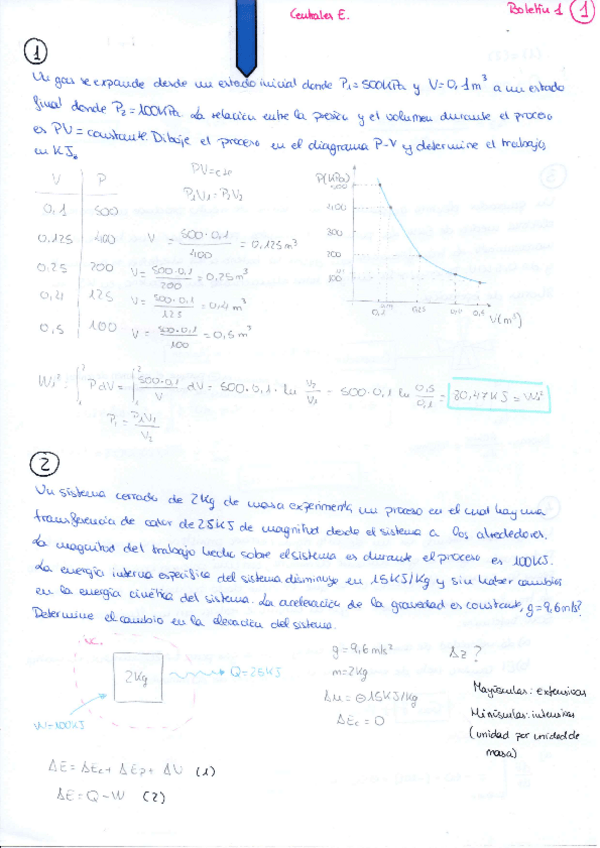 Centrales E.
Boletín 1 ①
①
Un gas se expande desde un estado inicial donde P₁=500KPa y V=0,1m³ a un estado
final donde P₂=100KPa. La relación entre la presión y el volumen durante el proceso
es PV=constante. Dibuje el proceso en el diagrama P-V y determine el trabajo,
en KJ.
V P
0,1 500
0,125 400
0,25 200
125
0,5 100
PV=cte
P₁V₁=P₂V₂
V = 500·0,1 / 400 = 0,125m³
V = 500·0,1 / 200 = 0,25m³
V = 500·0,1 / 125 = 0,4m³
V = 500·0,1 / 100 = 0,5m³
P(KPa)
400
300
200
100
0,1 0,25
V(m³)
W₁² = ∫₁² PdV = ∫₁² 500·0,1 / V dV = 500·0,1·ln V₂/V₁ = 500·0,1 ln 0,5/0,1 = 80,47KJ = W₁²
②
Un sistema cerrado de 2Kg de masa experimenta un proceso en el cual hay una
transferencia de calor de 25KJ de magnitud desde el sistema a los alrededores.
La magnitud del trabajo hecho sobre el sistema es durante el proceso es 100KJ.
La energía interna específica del sistema disminuye en 15KJ/Kg y sin haber cambios
en la energía cinética del sistema. La aceleración de la gravedad es constante, g=9,6m/s².
Determine el cambio en la elevación del sistema.
2Kg
Q=25KJ
W=100KJ
g=9,6m/s²
m=2Kg
Δu=⊖15KJ/Kg
ΔEc=0
Δz?
Mayúsculas: extensivas
Minúsculas: intensivas
(unidad por unidad de
masa)
ΔE=ΔEc+ΔEp+ΔU (1)
ΔE=Q-W (2)